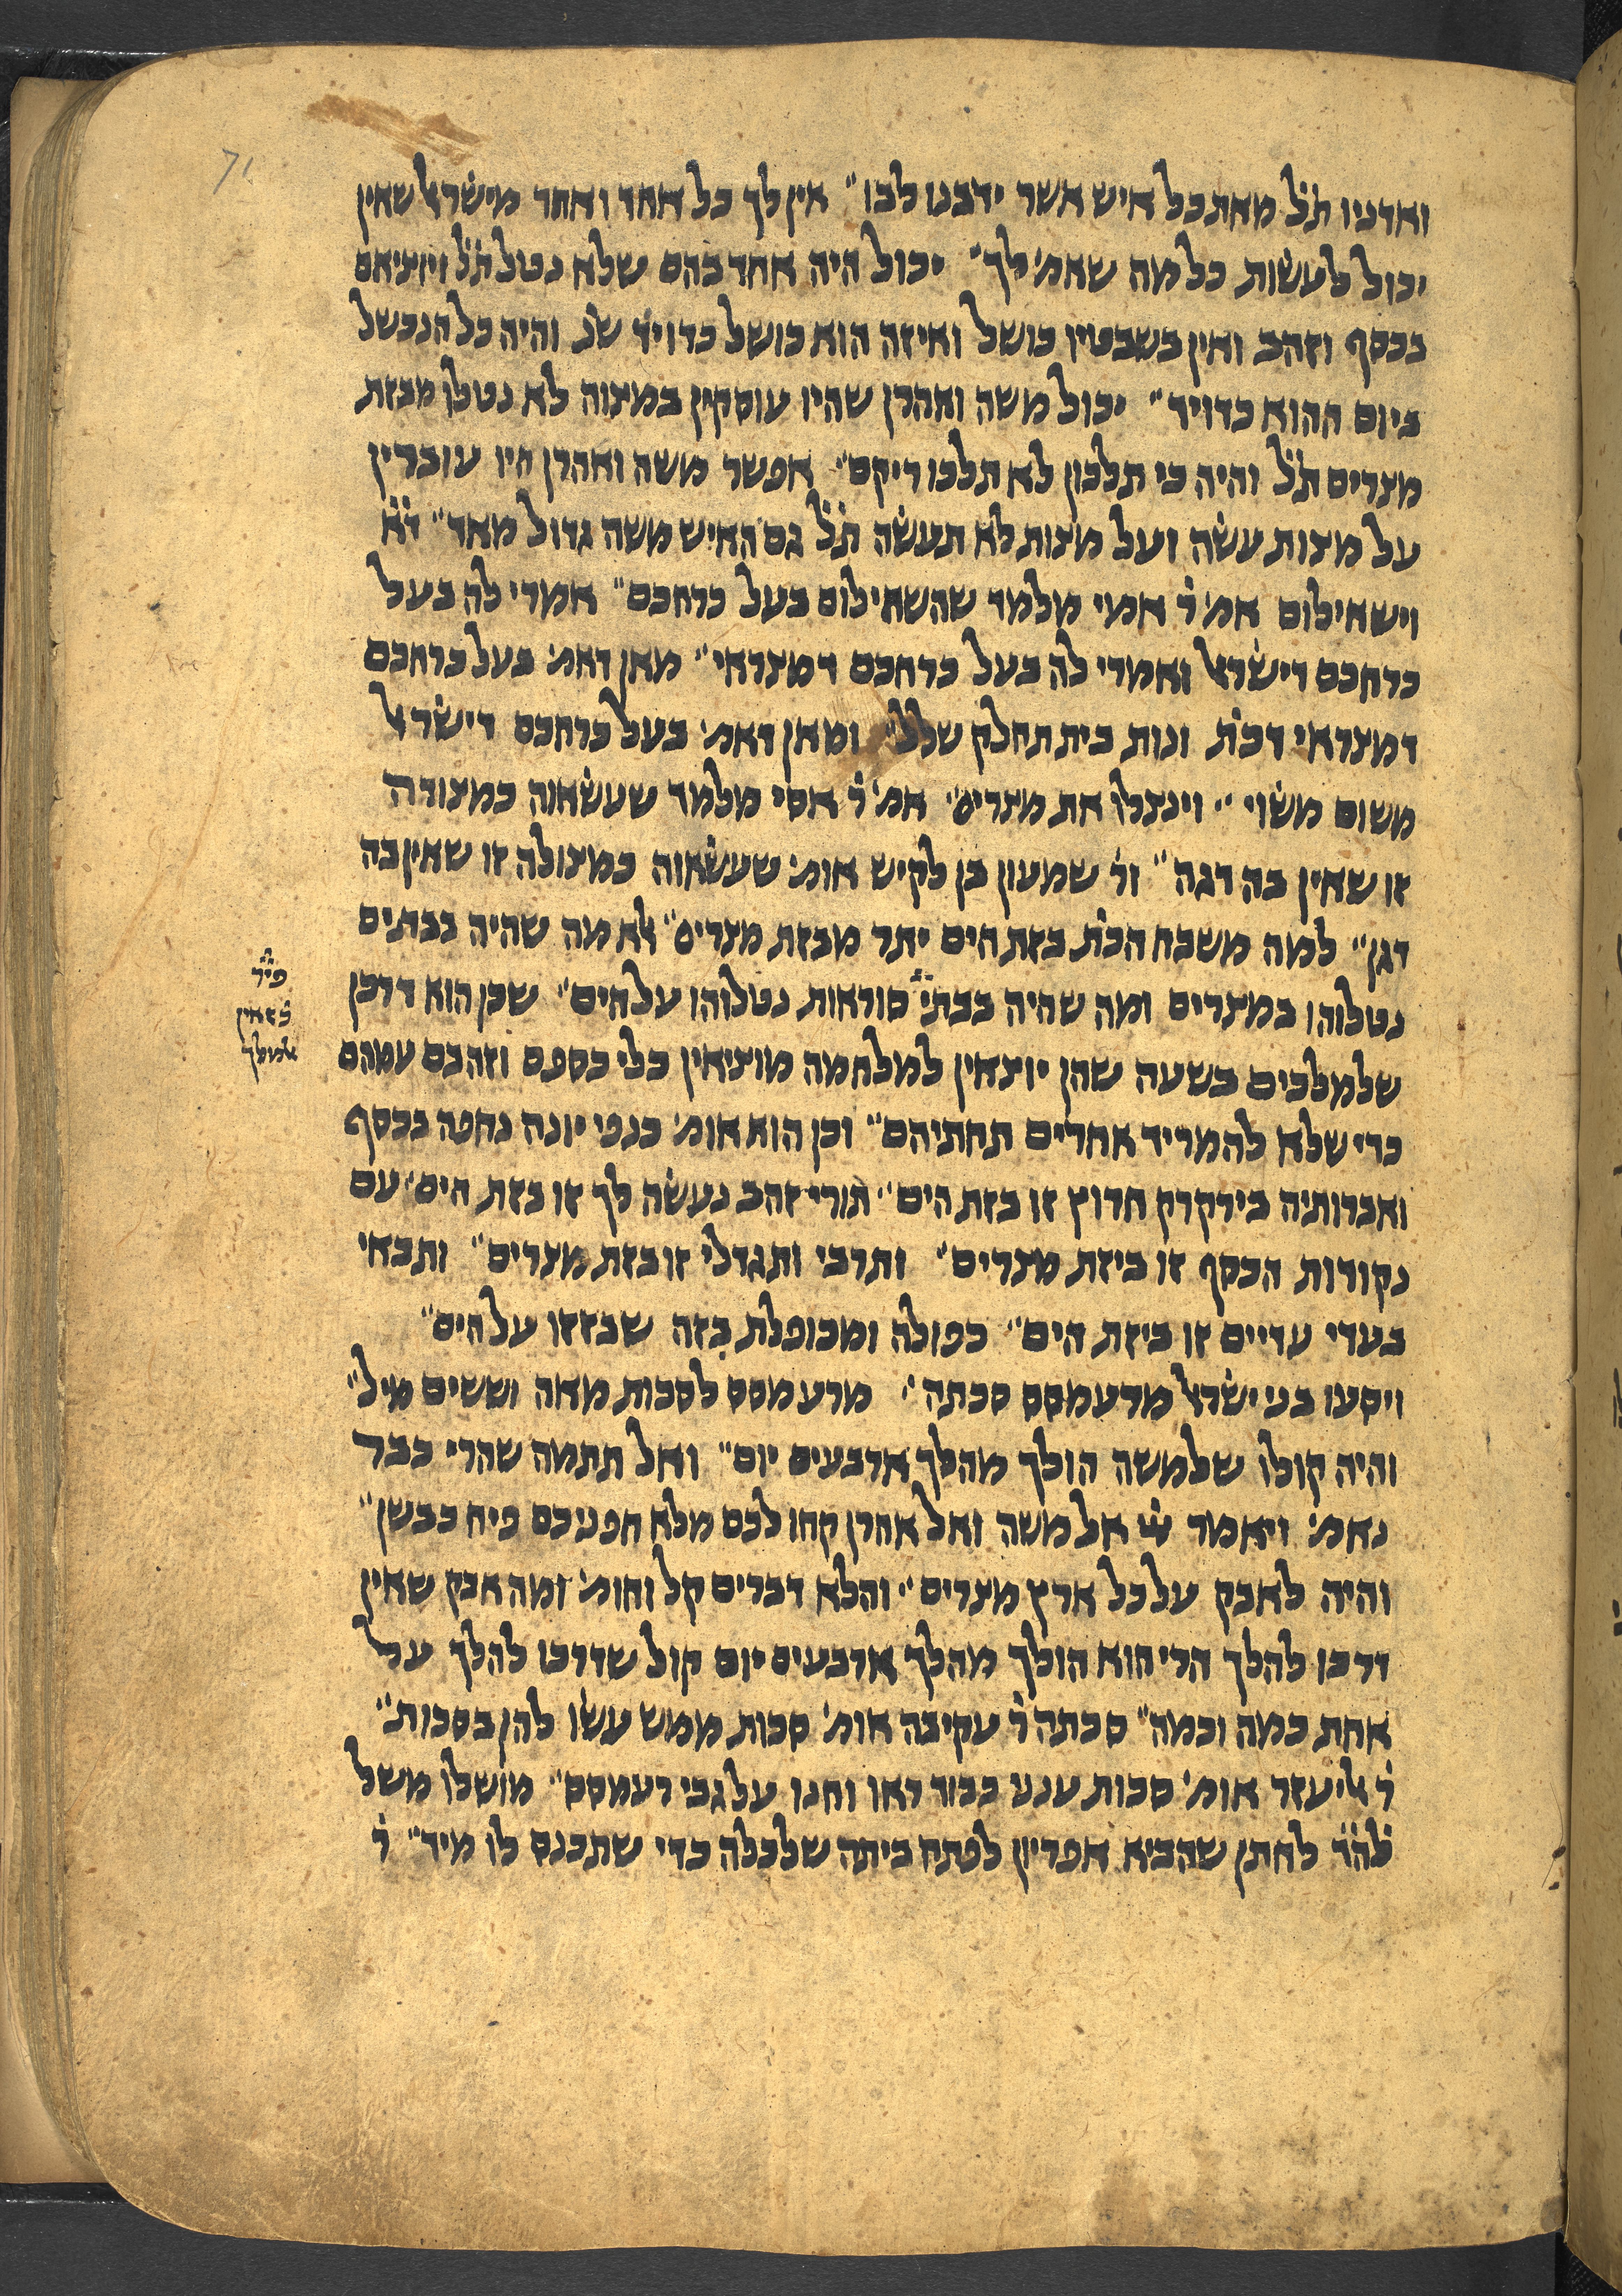 71
ואדניו ת̇ל̇ מאת כל איש אשר ידבנו לבו״ אין לך כל אחד ואחד מישׂראל שאין
יכול לעשׂות כל מה שאמ׳ לך״ יכול היה אחד בהם שלא נטל ת̇ל̇ ויוציאם
בכסף וזהב ואין בשבטיו כושל ואיזה הוא כושל כדויד שנ̇ והיה כל הנכשל
ביום ההוא כדויד״ יכול משה ואהרן שהיו עוסקין במצוה לא נטלו מבזת
מצרים ת̇ל̇ והיה כי תלכון לא תלכו ריקם״ אפשר משה ואהרן היו עוברין
על מצות עשׂה ועל מצות לא תעשׂה ת̇ל̇ גם האיש משה גדול מאד״ ד̇א̇
וישאילום אמ׳ ר̇ אמי מלמד שהשאילום בעל כרחכם״ אמרי לה בעל
כרחכם דישׂראל ואמרי לה בעל כרחכם דמצראי״ מאן דאמ׳ בעל כרחכם
דמצראי דכת̇ ונות בית תחלק שלל״ ומאן דאמ׳ בעל כרחכם דישׂראל
משום משׂוי״ וינצלו את מצרים״ אמ׳ ר̇ אסי מלמד שעשׂאוה כמצודה
זו שאין בה דגה״ ור̇ שמעון בן לקיש אומ׳ שעשׂאוה כמצולה זו שאין בה
דגן״ למה משבח הכת̇ בזת הים יתר מבזת מצרים״ אלא מה שהיה בבתים
נטלוהו במצרים ומה שהיה בבתי̈ סוראות נטלוהו על הים״ שכן הוא דרכן
שלמלכים בשעה שהן יוצאין למלחמה מוציאין כלי כספם וזהבם עמהם
כדי שלא להמריד אחרים תחתיהם״ וכן הוא אומ׳ כנפי יונה נחפה בכסף
ואברותיה בירקרק חרוץ זו בזת הים״ תורי זהב נעשׂה לך זו בזת הים״ עם
נקודות הכסף זו ביזת מצרים״ ותרבי ותגדלי זו בזת מצרים״ ותבאי
בעדי עדיים זו ביזת הים״ כפולה ומכופלת בזה שבזזו על הים״
ויסעו בני ישׂראל מרעמסס סכתה״ מרעמסס לסכות מאה וששים מיל״
והיה קולו שלמשה הולך מהלך ארבעים יום״ ואל תתמה שהרי כבר
נאמ׳ ויאמר ייי אל משה ואל אהרן קחו לכם מלא חפניכם פיח כבשן״
והיה לאבק על כל ארץ מצרים״ והלא דברים קל וחומ׳ ומה אבק שאין
דרכו להלך הרי הוא הולך מהלך ארבעים יום קול שדרכו להלך על
אחת כמה וכמה״ סכתה ר̇ עקיבה אומ׳ סכות ממש עשׂו להן בסכות״
ר̇ אליעזר אומ׳ סכות ענני כבוד ראו וחנו על גבי רעמסס״ מושלו משל
למ̇ה̇ד̇ לחתן שהביא אפריון לפתח ביתה שלכלה כדי שתכנס לו מיד״ ר̇
פי̇ר̇
אלמלך